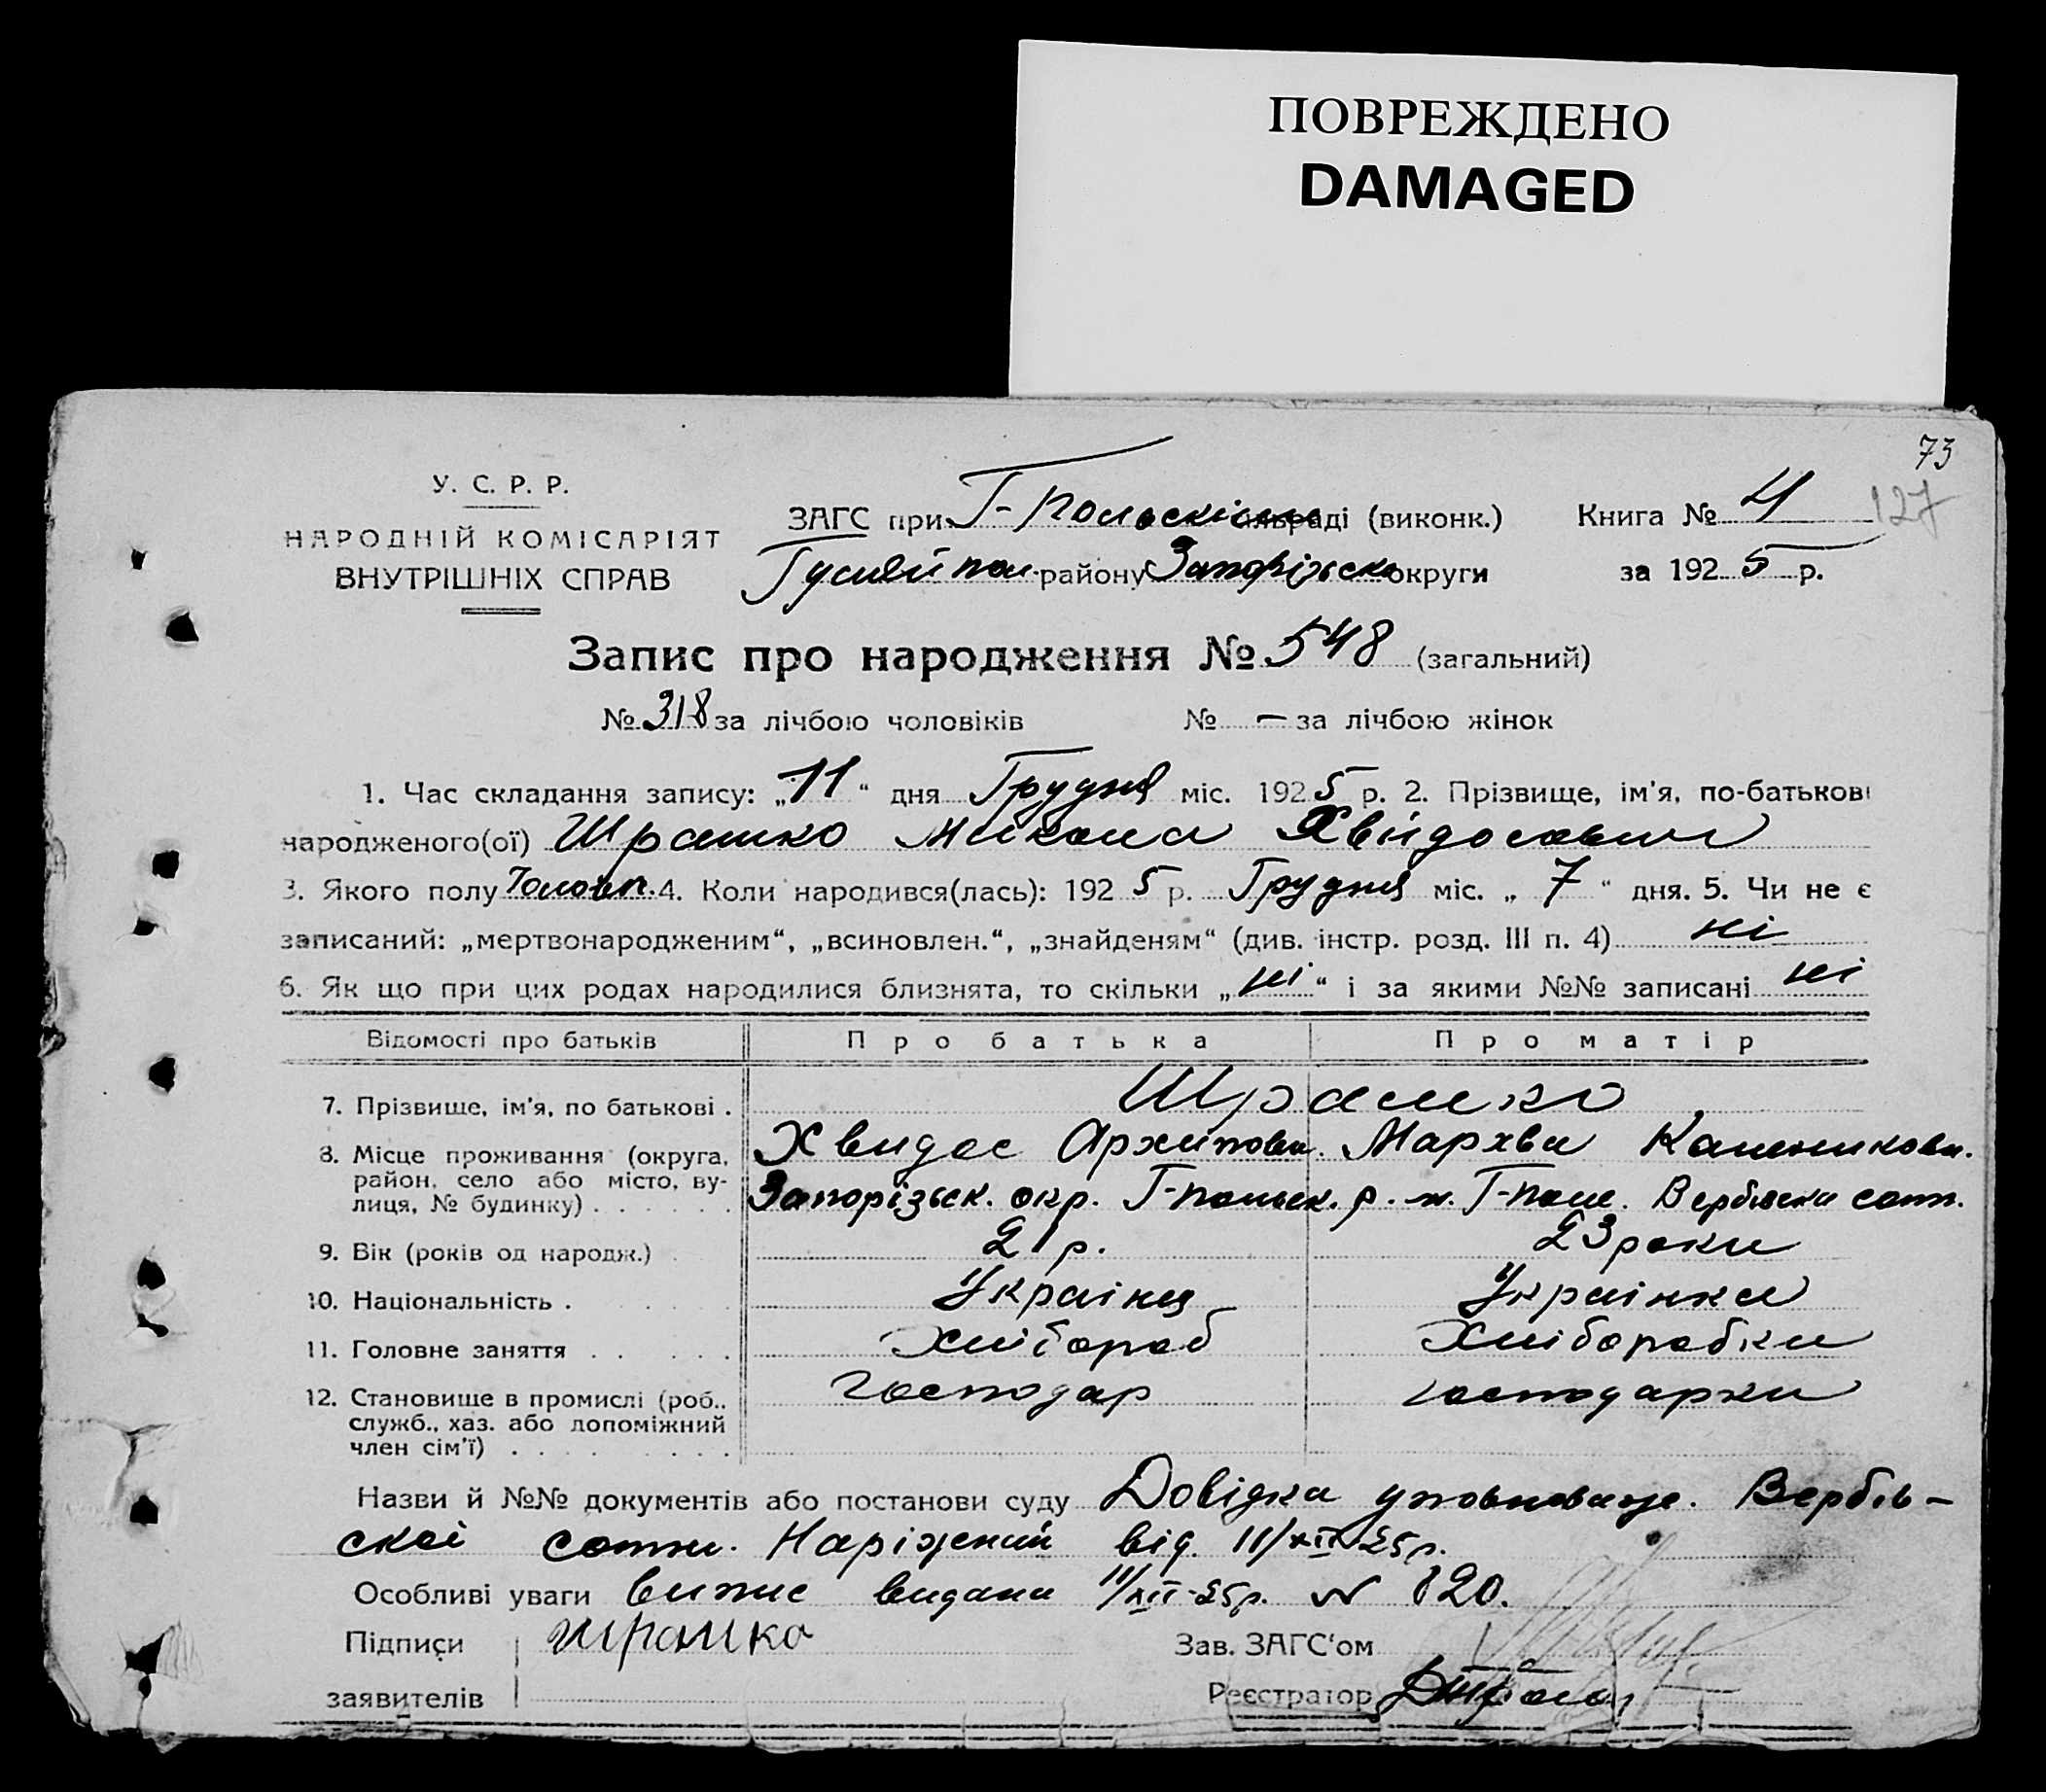 ПОВРЕЖДЕНО
DAMAGED
73
127
У. С. Р. Р.
НАРОДНІЙ КОМІСАРІЯТ
ВНУТРІШНІХ СПРАВ
ЗАГС при Г-Польскім раді (виконк.)
Книга № 4
Гуляйпол. району Запорізько округи
за 1925 р.
Запис про народження № 548 (загальний)
№ 318 за лічбою чоловіків № — за лічбою жінок
1. Час складання запису: „11“ дня Грудня міс. 1925 р. 2. Прізвище, ім'я, по-батькові
народженого(ої) Шрамко Микола Хвидосович
3. Якого полу Чолов. 4. Коли народився(лась): 1925 р. Грудня міс. „7“ дня. 5. Чи не є
записаний: „мертвонародженим“, „всиновлен.“, „знайденям“ (див. інстр. розд. III п. 4) ні
6. Як що при цих родах народилися близнята, то скільки „ні“ і за якими №№ записані ні
Відомості про батьків Про батька Про матір
7. Прізвище, ім'я, по батькові . Шрамко
Хвидос Архипови. Мархва
8. Місце проживання (округа,
район, село або місто, ву-
лиця, № будинку) . . . . . . Запорізьск. окр. Г-польск. р. м. Г-поле. Вербівска сотн.
9. Вік (років од народж.) 21 р. 23 роки
10. Національність . Украінец Украінка
11. Головне заняття . . . . . Хлібороб Хліборобка
12. Становище в промислі (роб.,
служб., хаз. або допоміжний
член сім'ї) . . . . . . . . . Господар господарка
Назви й №№ документів або постанови суду Довідка уповноваж. Вербів-
ској сотни. Наріжний від. 11/XII 25 р.
Особливі уваги випис видана 11/XII-25р. № 820.
Підписи Шрамко Зав. ЗАГС'ом
заявителів Реєстратор